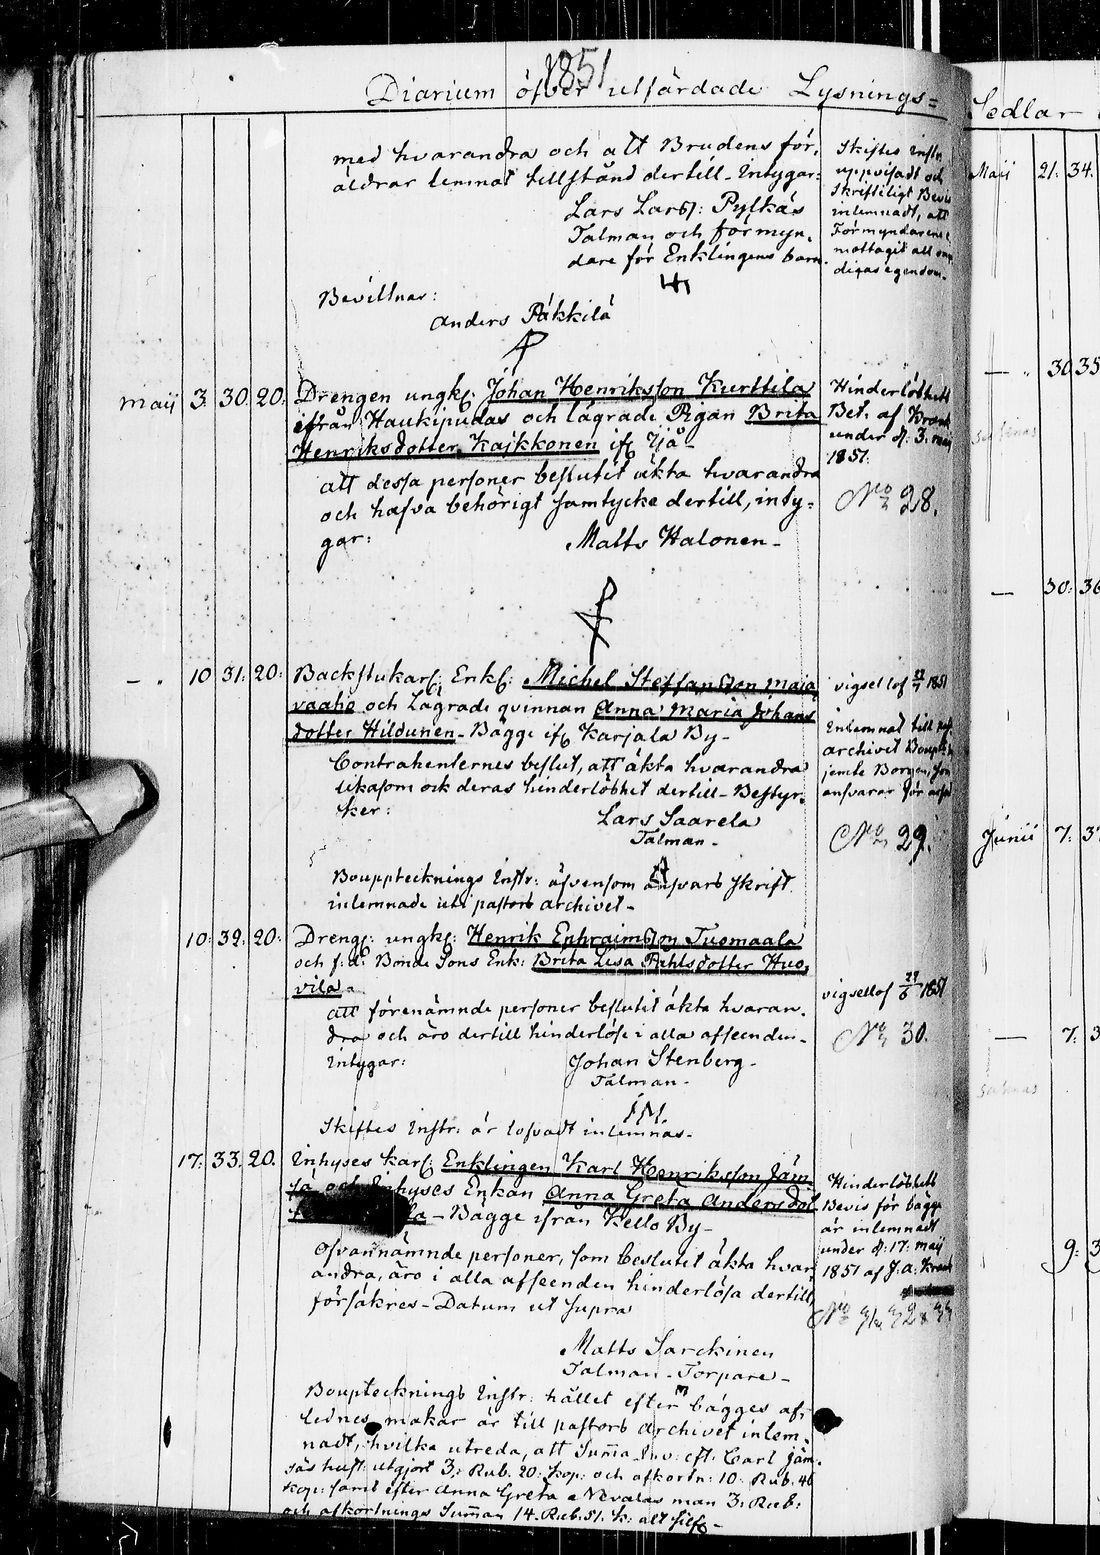 1851
Diarium öfver utfärdade Lysnings=
med hvarandra och att Brudens för,
äldrar lemnat tillstånd dertill - Intygar:
Lars Larsſ: Pylkäs
Talman och förmyn,
dare för Enklingens barn
Bevittnar:
Anders Päkkilä
Skiftes Instr
uppvisadt och
Skriftiligt Bevis
inlemnadt, att
Förmyndarene
mottagit all om
digas egendom.
Maij 3. 30. 20. Drengen ungkſ: Johan Henriksſon Kurttila
ifrån Haukipudas och Lägrade Pigan Brita
Henriksdotter Kaikkonen ifſ Ijå -
att dessa personer beslutit äkta hvarandra
och hafva behörigt samtycke dertill, inty=
gar: Matts Halonen -
Hinderlöshets
Bet. af
under d: 3. maij
1851.
No 28.
- " 10 31. 20. Backstukarſ: Enkſ: Michel Steffansson Maia,
vaaho och Lägrade qvinnan Anna Maria Johans
dotter Hildunen - Bägge ifſ Karjala By -
Contrahenternes beslut, att äkta hvarandra
likasom ock deras hinderlöshet dertill - Bestyr,
ker: Lars Saarela
Talman -
Boupptecknings Instr: äfvensom ansvars skrift
inlemnade uti pastors archivet -
vigsellof 1851
Inlemnat till past
archivet
jemte Borgen, som
ansvarar för
No 29.
10: 32. 20: Drengſ: ungkſ: Henrik Ephraimsson Tuomaala
och f: d: Bonde Sons Enk: Brita Lisa Pahlsdotter Huo,
vila -
att förenämnde personer beslutit äkta hvaran,
dra och äro dertill hinderlöse i alla afseenden -
Intygar: Johan Stenberg -
Talman -
Skiftes Instr: är lofvadt inlemnas -
vigsellof 29/6 1851
No 30.
17: 33. 20. Inhyses karſ: Enklingen Karl Henriksson Jäm,
sä och Inhyses Enkan Anna Greta Andersdot
la - Bägge ifrån Kello By -
Ofvannämnde personer, som beslutit äkta hvar,
andra, äro i alla afseenden hinderlösa dertill,
försäkres - Datum ut supra
Matts Sarckinen
Talman - Torpare -
Bouptecknings Instr: hållet efter bägges af,
lednes makar är till pastors archivet inlem,
nadt, hvilka utreda, att Summa Inv: eft: Carl Jäm,
säs hust: utgjort 3: Rub. 20: kop: och afkortn: 10: Rub. 46
kop: samt efter Anna Greta Nevalas man 3: Rub:
och afkortnings Summan 14. Rub. 51. k: allt silf -
Hinderlöshets
Bevis för bägge
är inlemnadt
under d: 17: maij
1851 af J. A.
No
Sedlar
Maij 21. 34.
— " 30 35
— 30: 36
Junii 7: 37
— 7: 3
9: 3